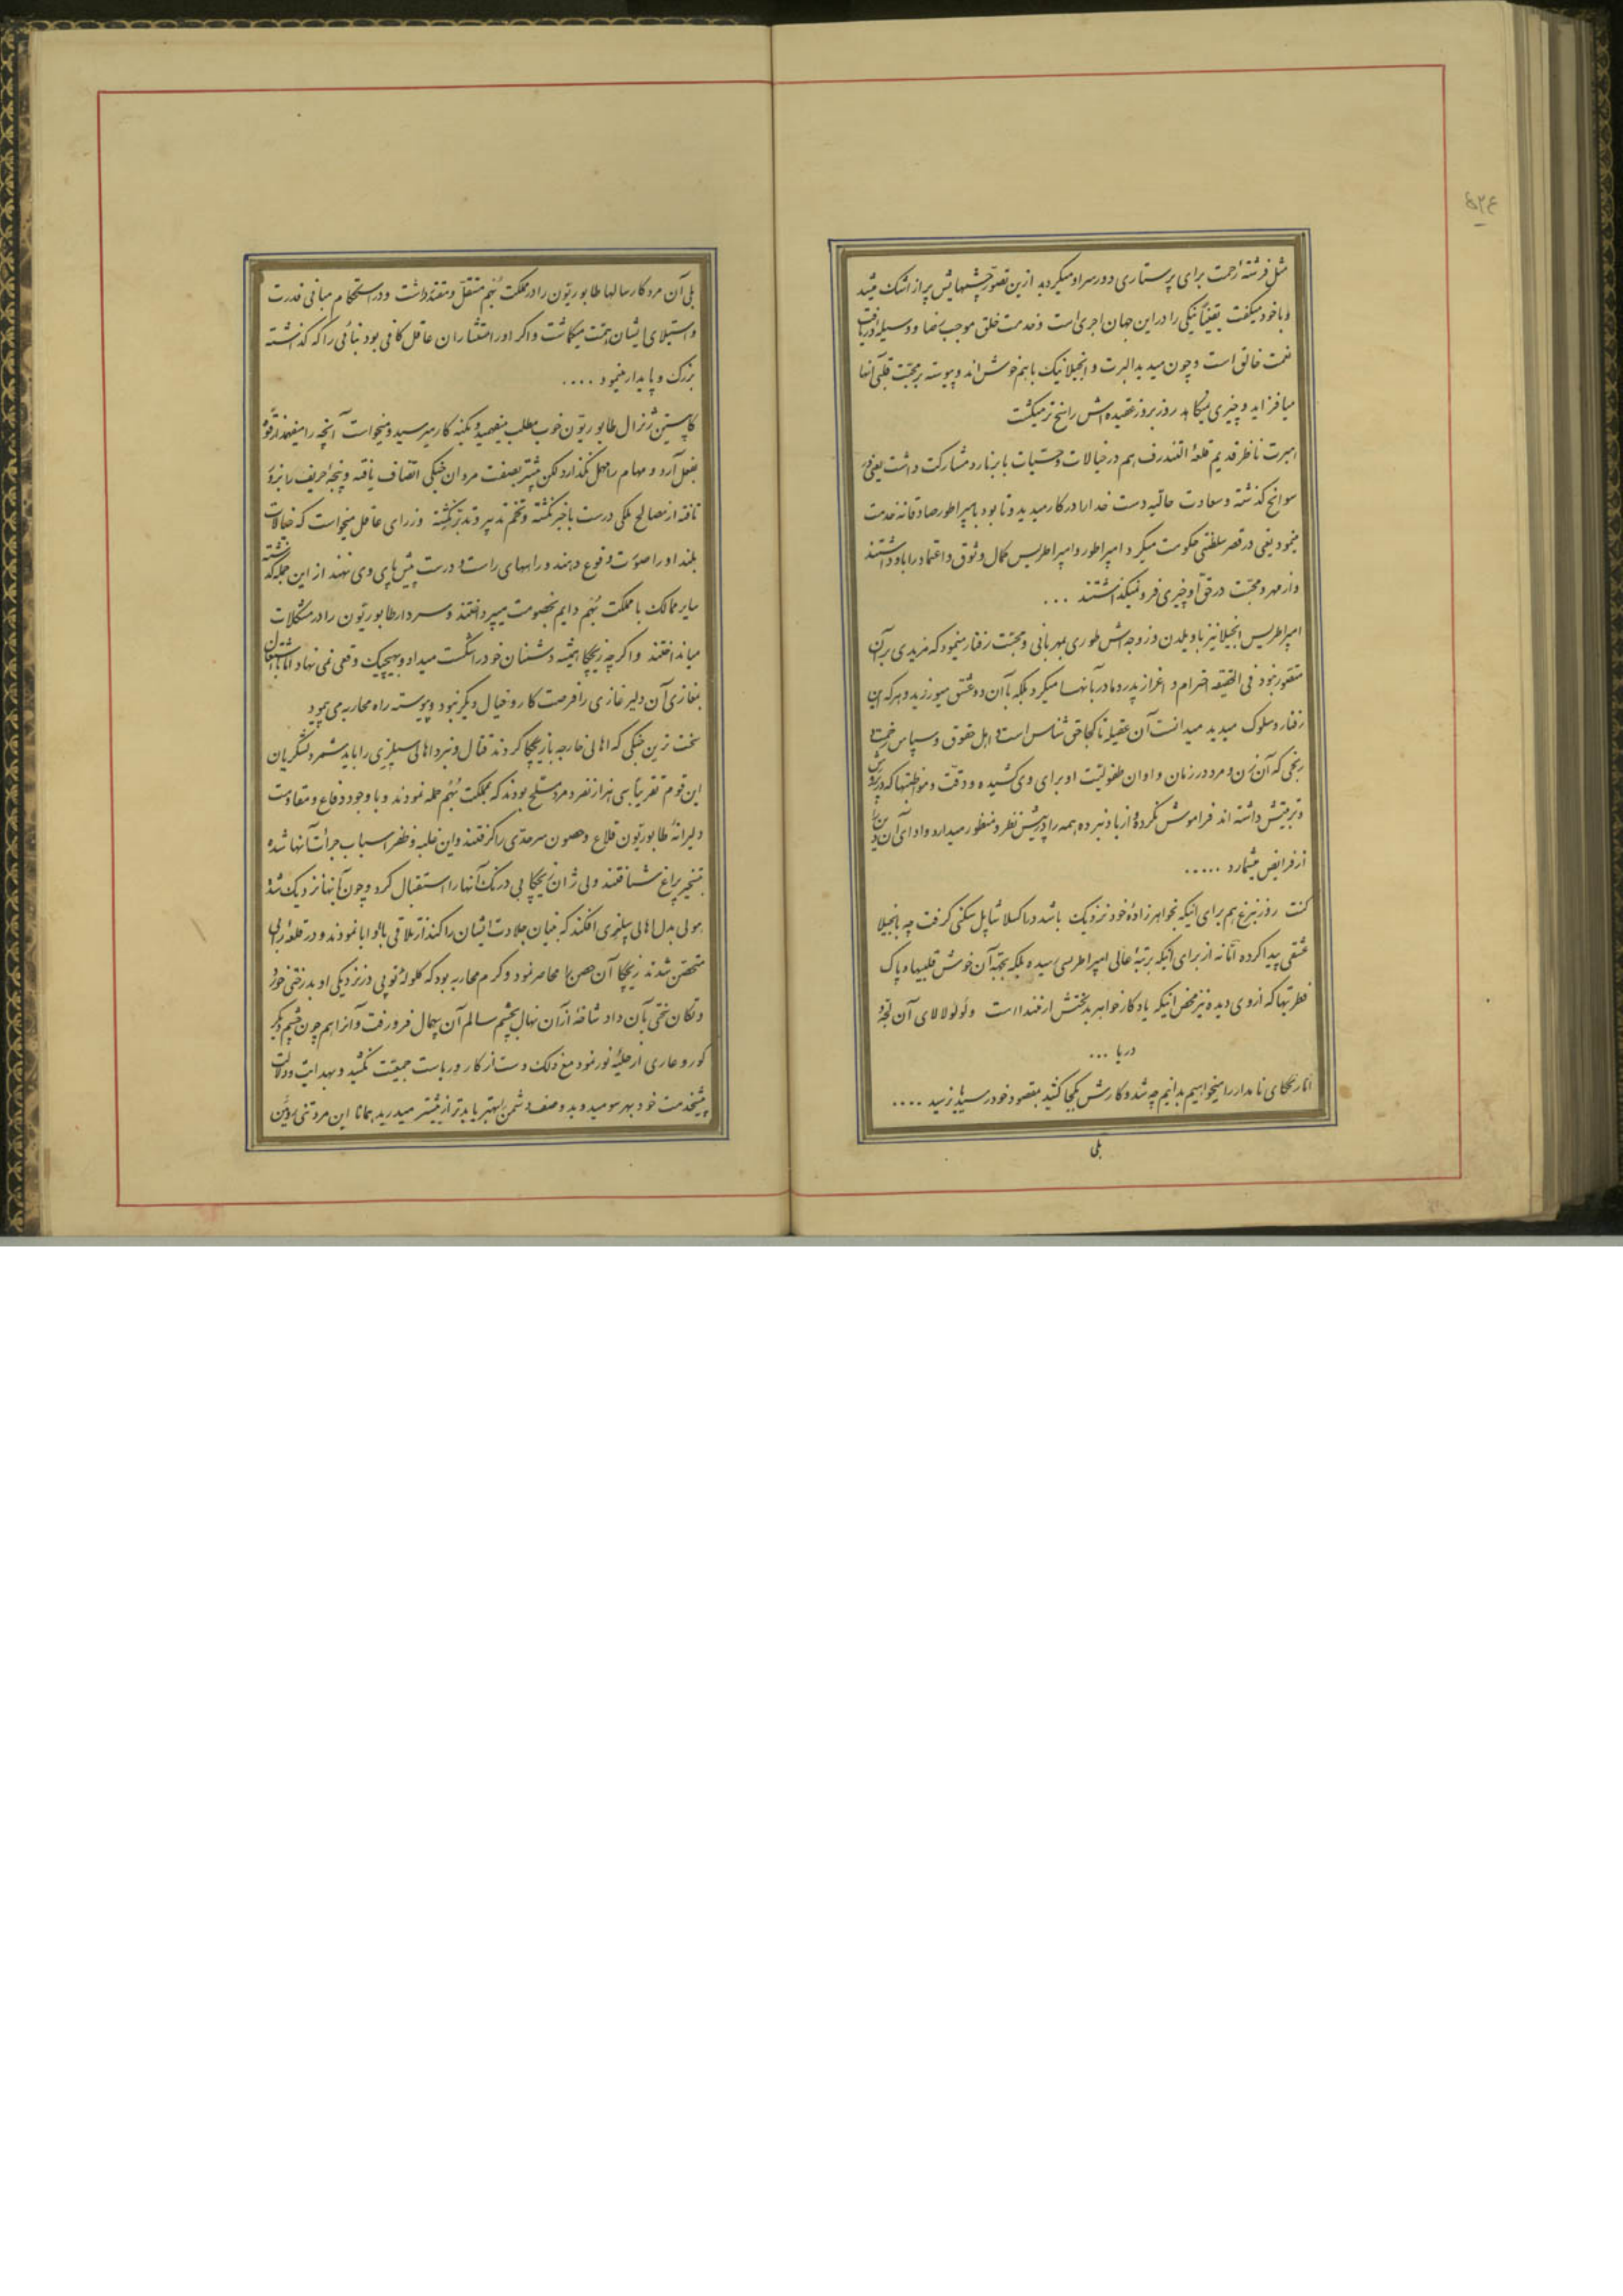 ۵۲۴
مثل فرشتهٔ رحمت برای پرستاری دور سر او میگردید ازین تصور چشمهایش پر از اشک میشد
و با خود میگفت یقیناً نیکی را در این جهان اجری است و خدمت خلق موجب رضا و وسیلهٔ دریافت
نعمت خالق است و چون میدید البرت و انجیلا نیک با هم خوش‌اند و پیوسته بر محبت قلبی آنها
میافزاید و چیزی نمیکاهد روز بروز عقیده‌اش راسخ‌تر میگشت
امبرت ناظر قدیم قلعهٔ التندرف هم در خیالات و حسیات با برنارد مشارکت داشت یعنی در
سوانح گذشته و سعادت حالیه دست خدا را در کار میدید و تا بود بامپراطور صادقانه خدمت
مینمود یعنی در قصر سلطنتی حکومت میکرد امپراطور و امپراطریس کمال وثوق و اعتماد را باو داشتند
و از مهر و محبت در حق او چیزی فرو نمیگذاشتند ...
امپراطریس انجیلا نیز با ویلدن و زوجه‌اش طوری بمهربانی و محبت رفتار مینمود که مزیدی بر آن
متصور نبود فی الحقیقه احترام و اعزاز پدر و مادر بآنها میکرد بلکه بآن دو عشق میورزید و هر که این
رفتار و سلوک میدید میدانست آن عقیله تا کجا حق شناس است و اهل حقوق و سپاس زحمت و
رنجی که آن زن و مرد در زمان و اوان طفولیت او برای وی کشیده و دقت و مواظبتها که در پرورش
و تربیتش داشته‌اند فراموش نکرده و از یاد نبرده همه را در پیش نظر و منظور میدارد و ادای آن دین را
از فرایض میشمارد .....
کنت روزنبرغ هم برای اینکه بخواهرزادهٔ خود نزدیک باشد در اکسلا شاپل سکنی گرفت چه بانجیلا
عشقی پیدا کرده اما نه از برای اینکه برتبهٔ عالی امپراطریسی رسیده بلکه بجهت آن خوش قلبیها و پاک
فطرتیها که از وی دیده نیز محض اینکه یادگار خواهر بدبختش ارمنداست و لؤلؤ لالای آن لجه و
دریا ...
اما ریچکای نامدار را میخواهیم بدانیم چه شد و کارش بکجا کشید بمقصود خود رسید یا نرسید ....
بلی
بلی آن مرد کار سالها طابوریتون را در مملکت بُهم مستقل و مقتدر داشت و در استحکام مبانی قدرت
و استیلای ایشان همت میگماشت و اگر او را مستشاران عاقل کافی بود بنائی را که گذاشته
بزرگ و پایدار مینمود ....
کاپیتن ژنرال طابوریتون خوب مطلب میفهمید و بکنه کار میرسید و میخواست آنچه را میفهمد از قوه
بفعل آرد و مهام را مهمل نگذارد لکن بیشتر بصفت مردان جنگی اتصاف یافته و پنجهٔ حریف را بزور
تافته از مصالح ملکی درست باخبر نگشته و تخم تدبیر و تدبر نکشته وزرای عاقل میخواست که خیالات
بلند او را صورت وقوع دهند و راههای راست و درست پیش پای وی نهند از این جمله گذشته
سایر ممالک با مملکت بُهم دایم بخصومت میپرداختند و سردار طابوریتون را در مشکلات
میانداختند و اگر چه ریچکا همیشه دشمنان خود را شکست میداد و بهیچیک وقعی نمی‌نهاد اما اشتغال
بمغازی آن دلیر غازی را فرصت کار و خیال دیگر نبود و پیوسته راه محاربه می‌پیمود
سخت‌ترین جنگی که اهالی خارجه با ریچکا کردند قتال و نبرد اهالی سیلزی را باید شمرد لشکریان
این قوم تقریباً سی هزار نفر مرد مسلح بودند که بمملکت بُهم حمله نمودند و با وجود دفاع و مقاومت
دلیرانهٔ طابوریتون قلاع و حصون سرحدی را گرفتند و این غلبه و ظفر اسباب جرأت آنها شده
بتسخیر پراغ شتافتند ولی ژان ریچکا بی درنگ آنها را استقبال کرد و چون بآنها نزدیک شد
هولی بدل اهالی سیلزی افکند که بنیان جلادت ایشان را کند از تلاقی با او ابا نمودند و در قلعهٔ رابی
متحصن شدند ریچکا آن حصن را محاصره نمود و گرم محاربه بود که گلولهٔ توپی در نزدیکی او بدرختی خورد
و تکان سختی بآن داد شاخهٔ از آن نهال بچشم سالم آن پیمال فرو رفت و آنرا هم چون چشم دیگر
کور و عاری از حلیهٔ نور نمود مع ذلک دست از کار و ریاست جمعیت نکشید و بهدایت و دلالت
پیشخدمت خود بهر سو میدوید و صف دشمن بهتر یا بدتر از پیشتر میدرید همانا این مرد تنی روئین